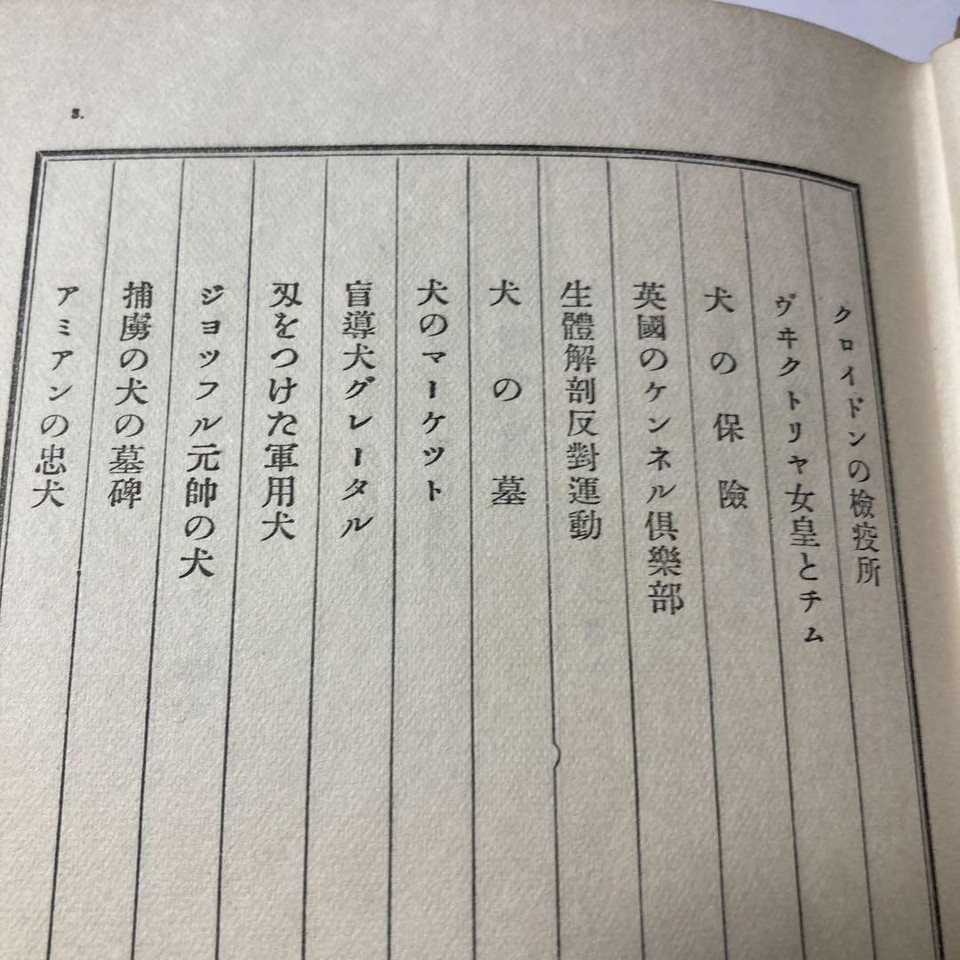 3.
クロイドンの檢疫所
ヴヰクトリヤ女皇とチム
犬の保險
英國のケンネル俱樂部
生體解剖反對運動
犬の墓
犬のマーケツト
盲導犬グレータル
刄をつけた軍用犬
ジョッフル元帥の犬
捕虜の犬の墓碑
アミアンの忠犬